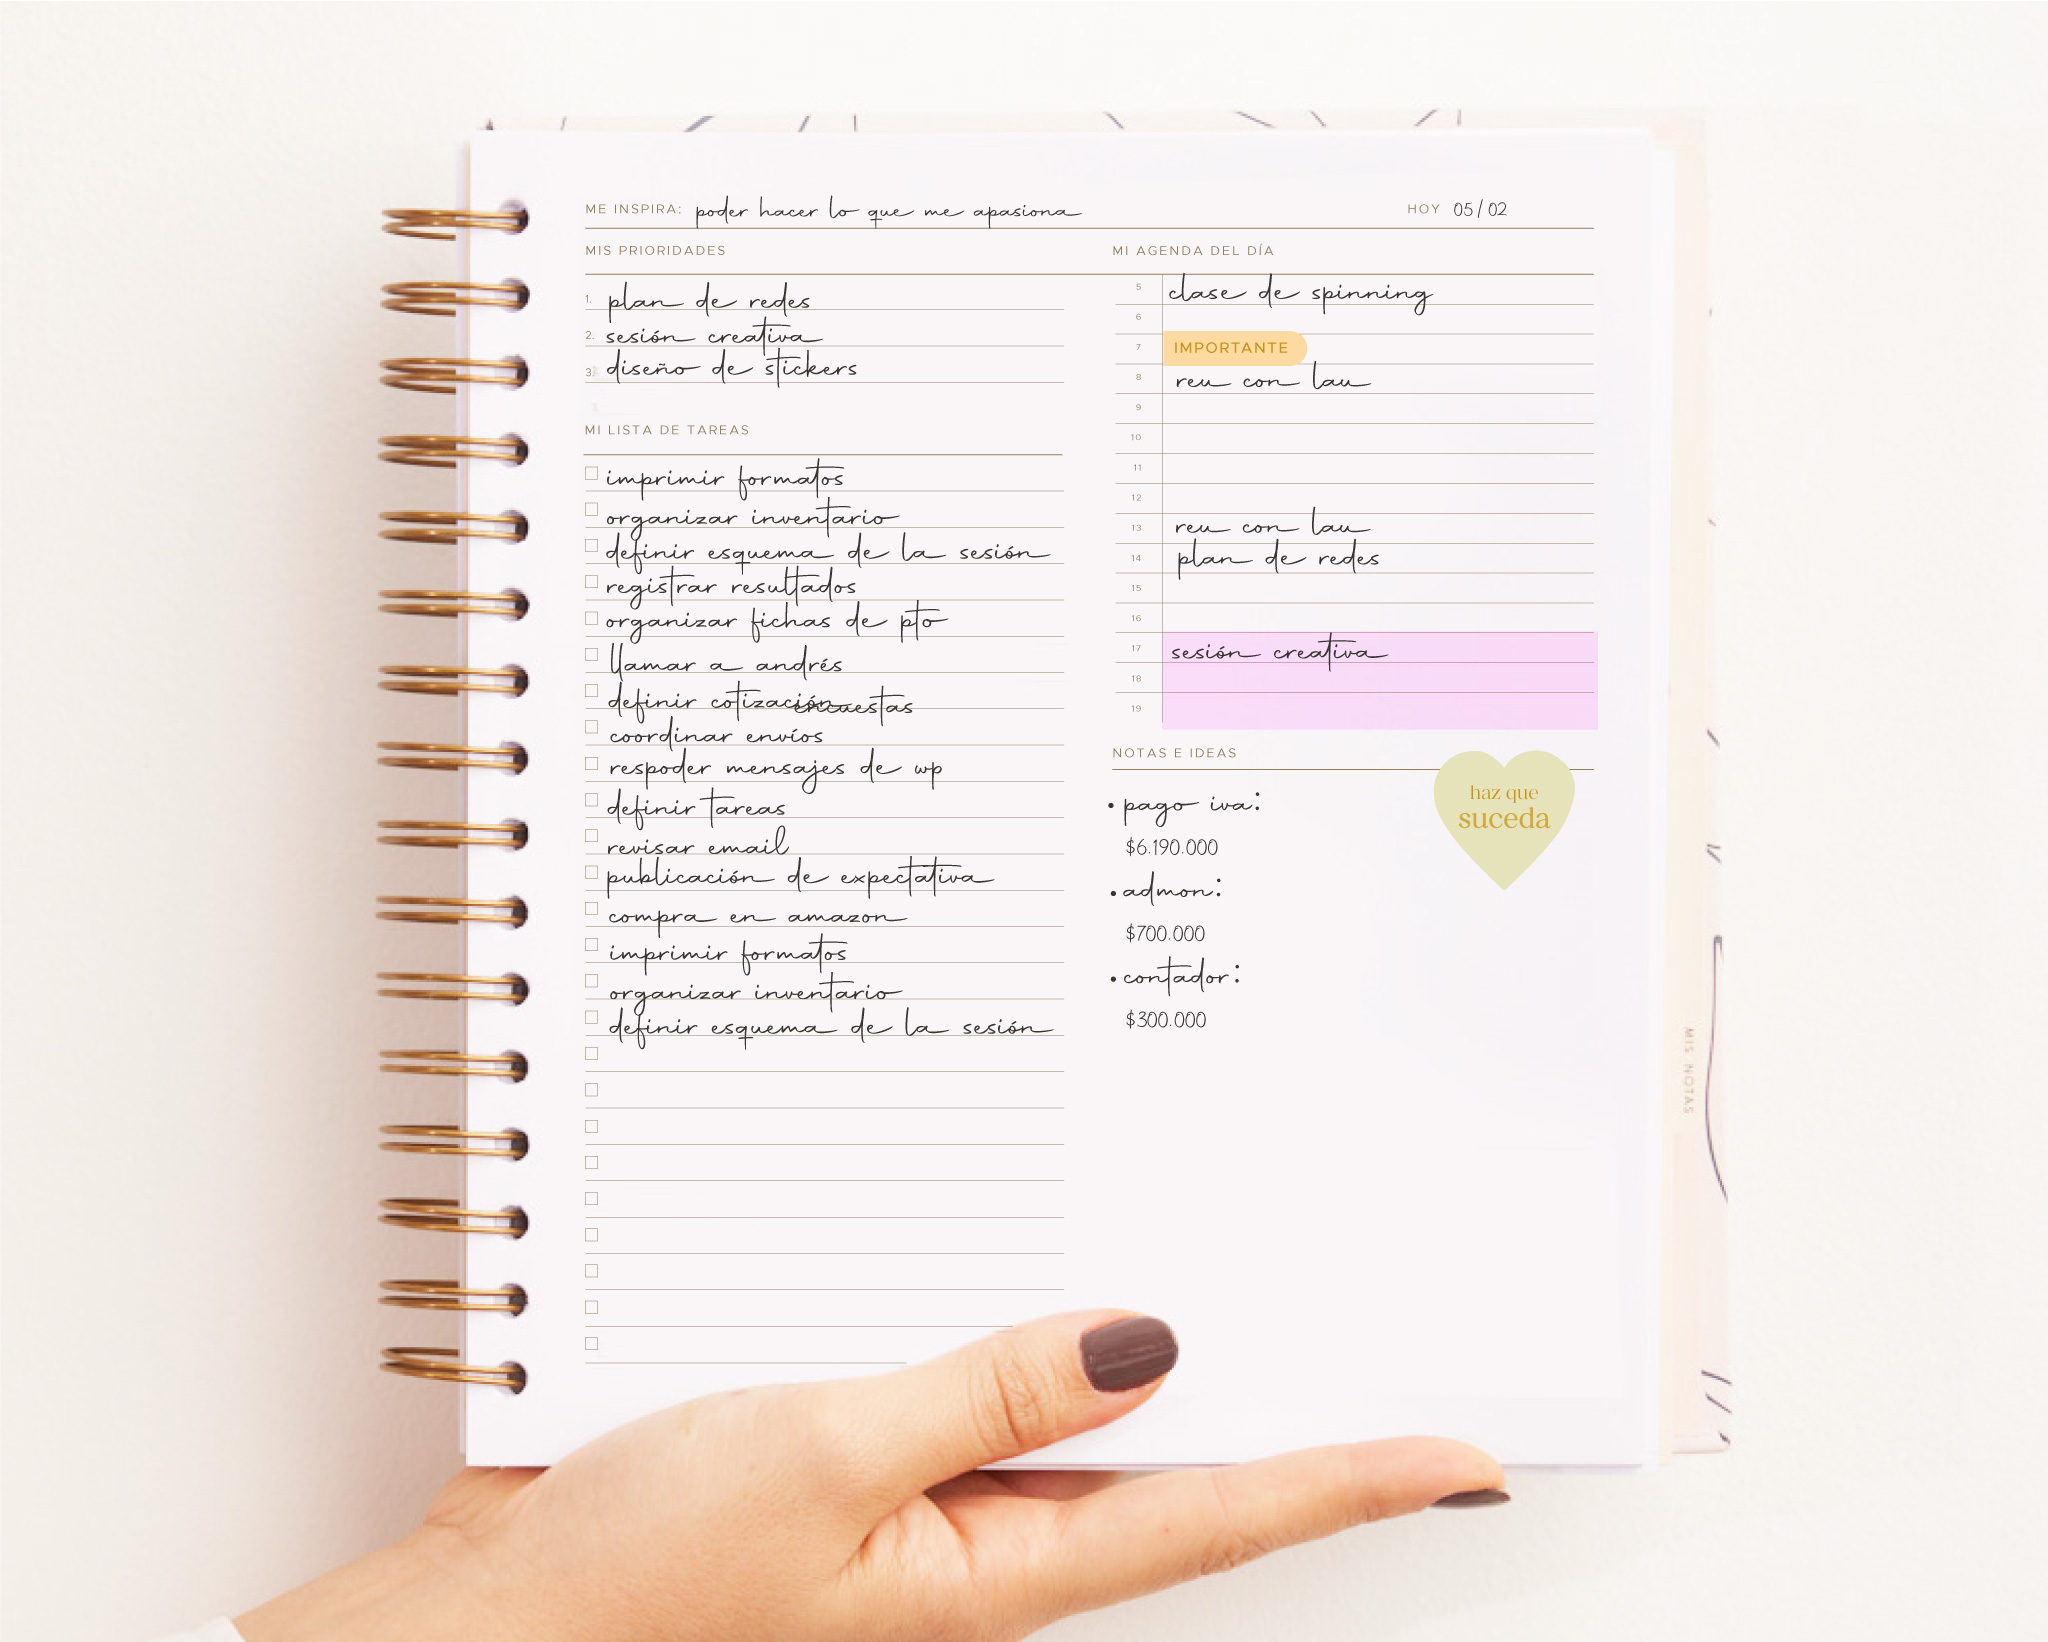 ME INSPIRA: poder hacer lo que me apasiona
HOY 05/02
MIS PRIORIDADES
1. plan de redes
2. sesión creativa
3. diseño de stickers
MI LISTA DE TAREAS
imprimir formatos
organizar inventario
definir esquema de la sesión
registrar resultados
organizar fichas de pto
llamar a andrés
definir cotización encuestas
coordinar envíos
respoder mensajes de wp
definir tareas
revisar email
publicación de expectativa
compra en amazon
imprimir formatos
organizar inventario
definir esquema de la sesión
MI AGENDA DEL DÍA
5 clase de spinning
6
7 IMPORTANTE
8 reu con lau
9
10
11
12
13 reu con lau
14 plan de redes
15
16
17 sesión creativa
18
19
NOTAS E IDEAS
haz que
suceda
• pago iva:
$6.190.000
• admon:
$700.000
• contador:
$300.000
MIS NOTAS